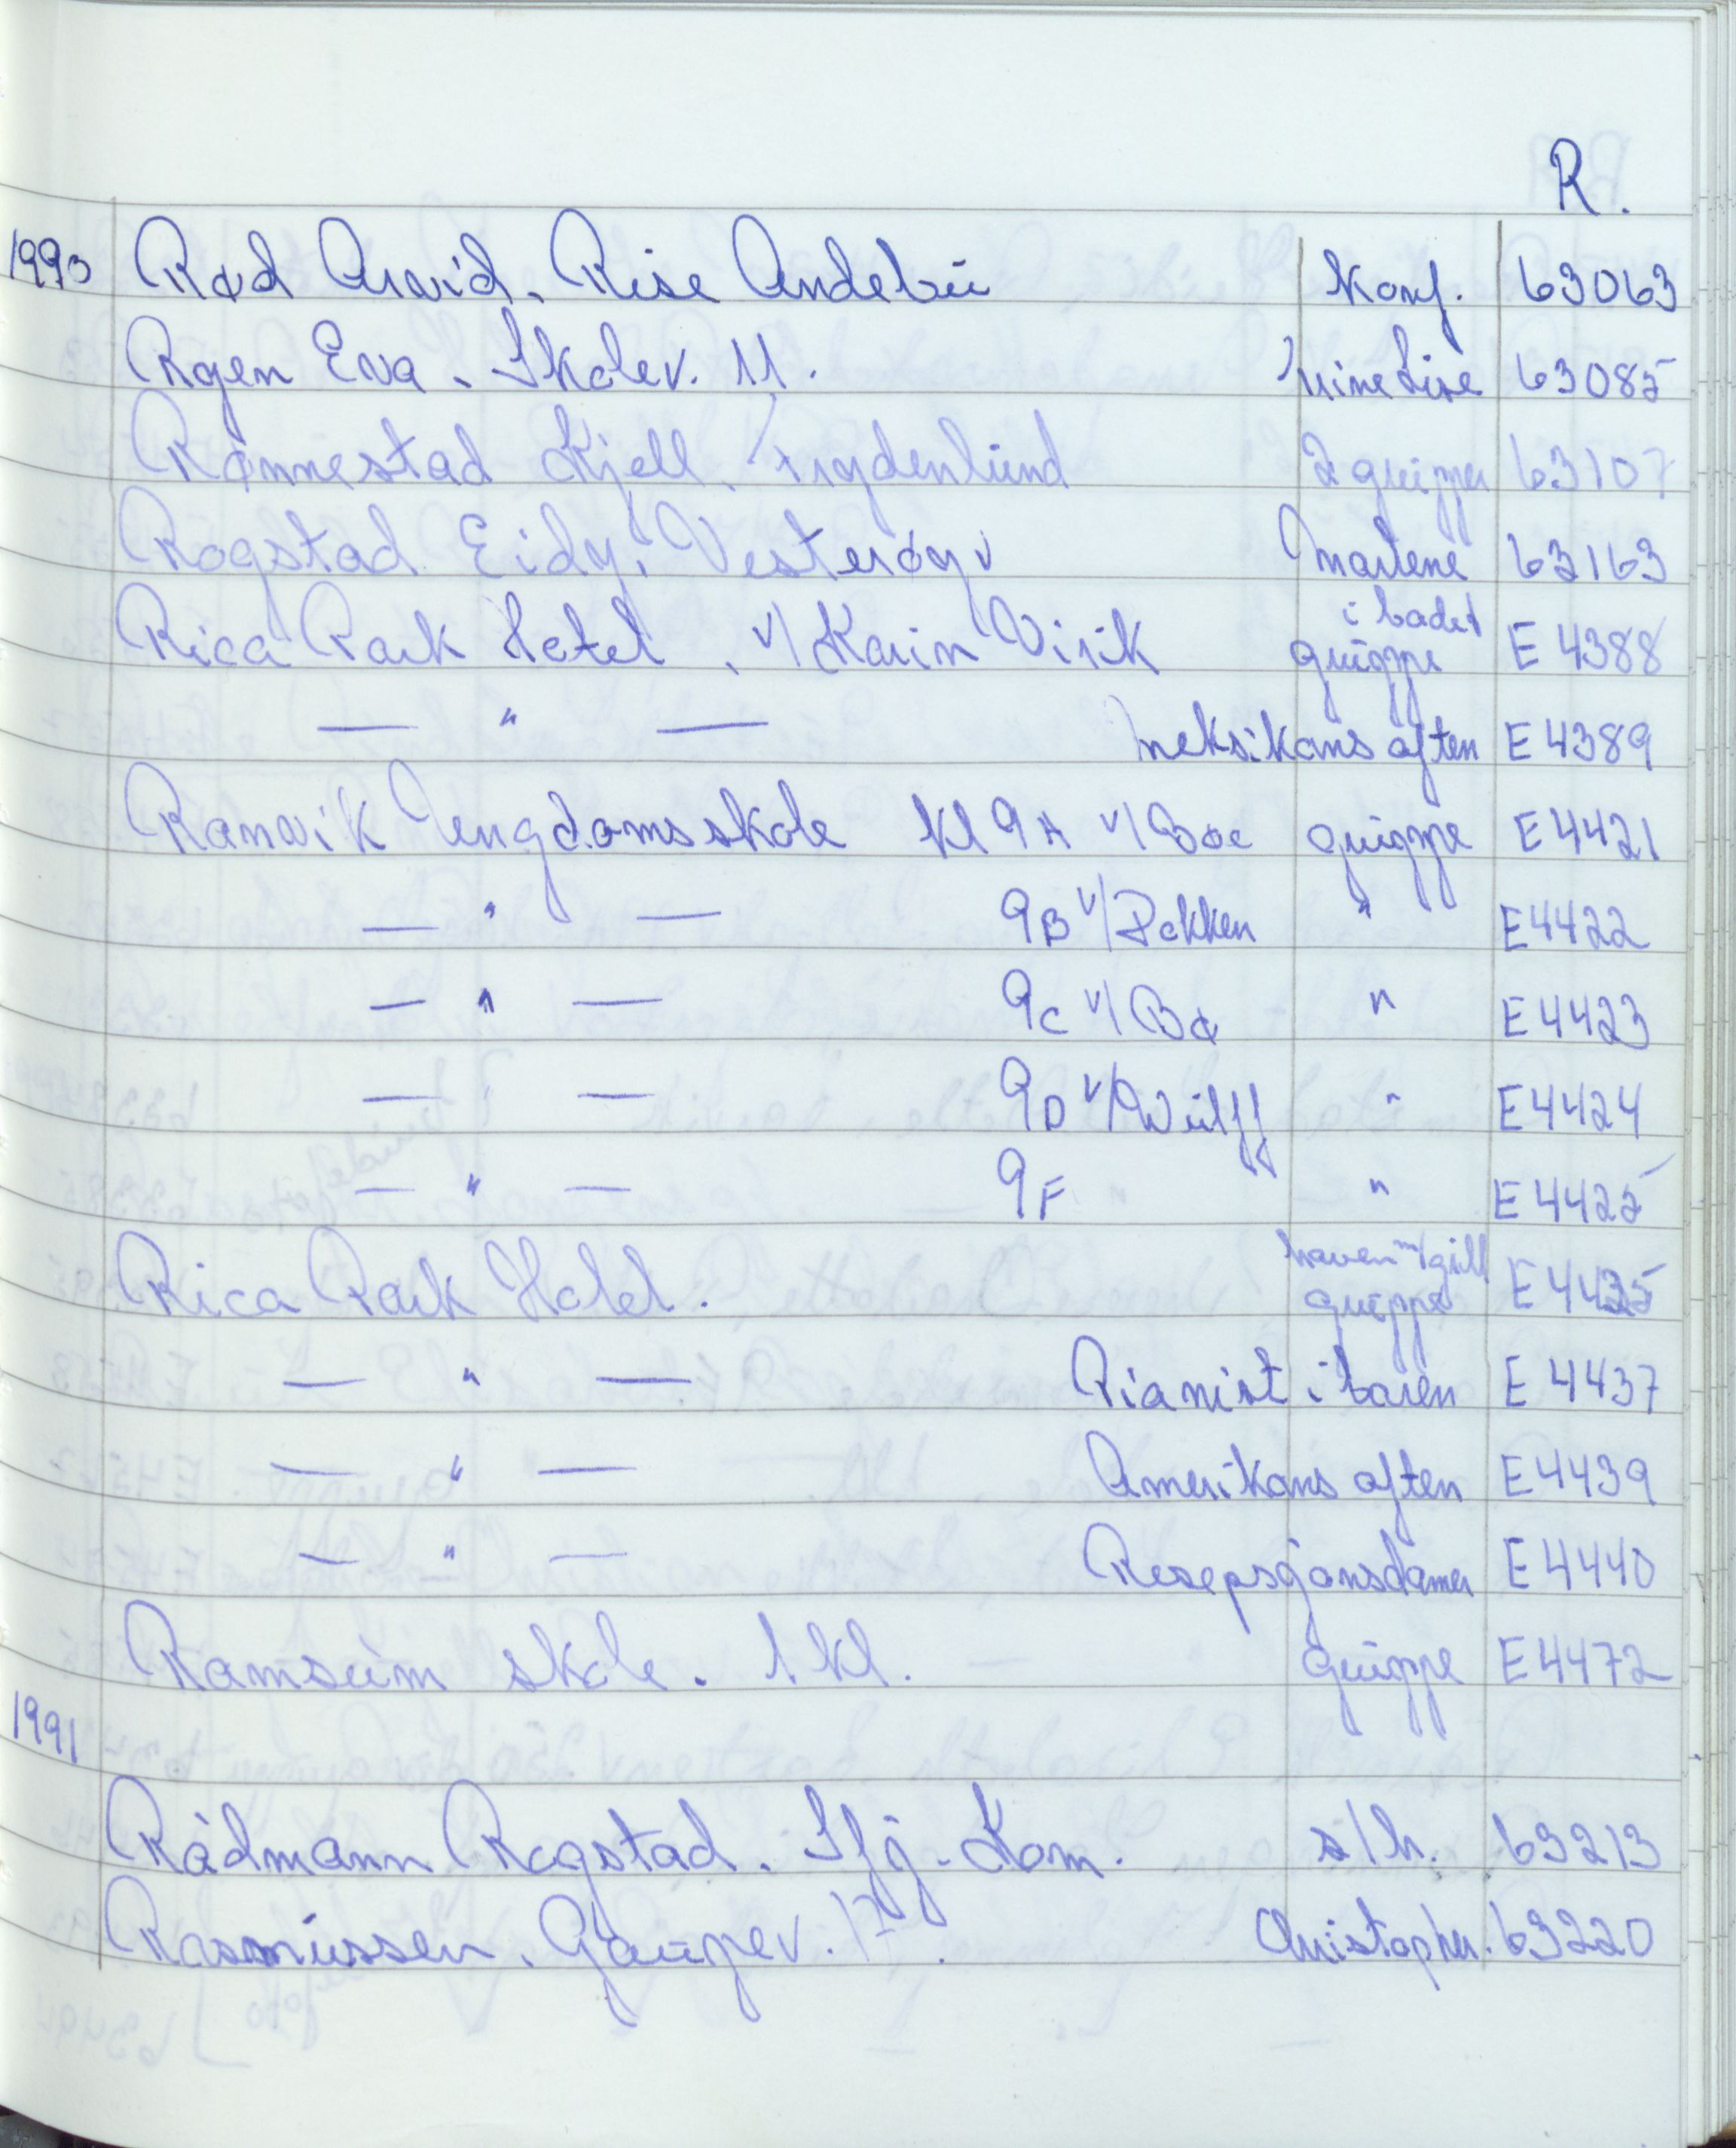 R.
1990 Rød Arvid. Rise Andebu konf. 63063
Rgen Eva. Skolev. 11. Trine Lise 63085
Rønnestad Kjell. Frydenlund 2 grupper 63107
Rogstad Eidy. Vesterøyv Marlene 63163
Rica Park Hotel. v/Karin Virik i badet gruppe E 4388
— " — Meksikans aften E 4389
Ranvik Ungdomsskole kl 9A v/Boe gruppe E 4421
— " — 9B v/Dokken " E 4422
— " — 9C v/Bø " E 4423
— " — 9D v/Wulff " E 4424
— " — 9F " E 4425
Rica Park Hotel. haven m/grill gruppe E 4435
— " — Pianist i baren E 4437
— " — Amerikans aften E 4439
— " — Resepsjonsdamer E 4440
Ramsum skole. 1 kl. gruppe E 4472
1991
Rådmann Rogstad. Sfj. Kom. s/h. 63213
Rasmussen. Gaupev. 17. Christopher. 63220